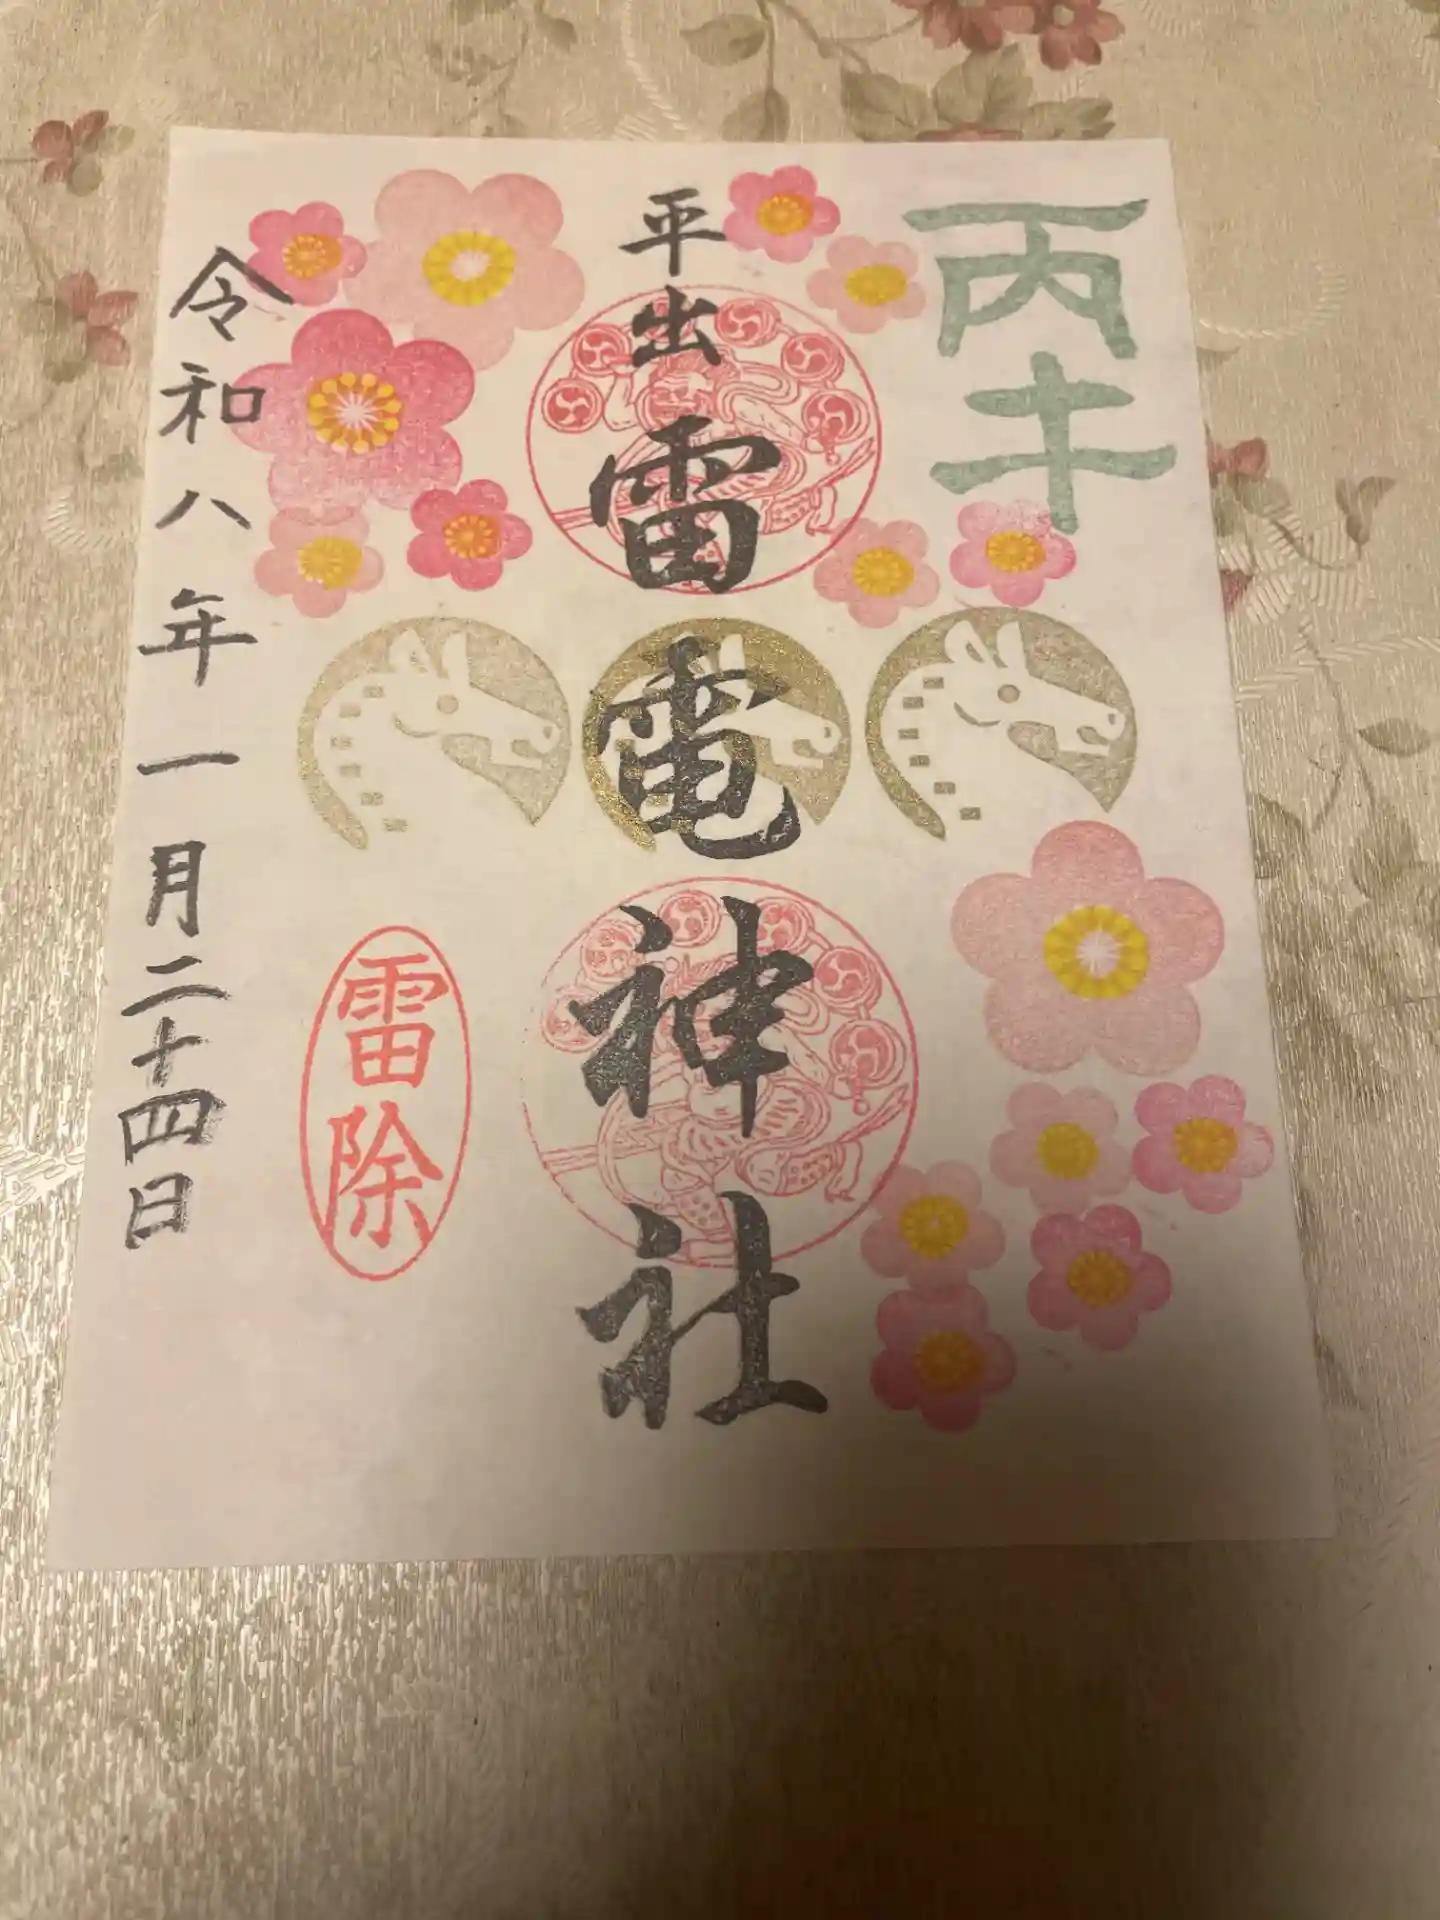 丙午
平出雷電神社
雷除
令和八年一月二十四日